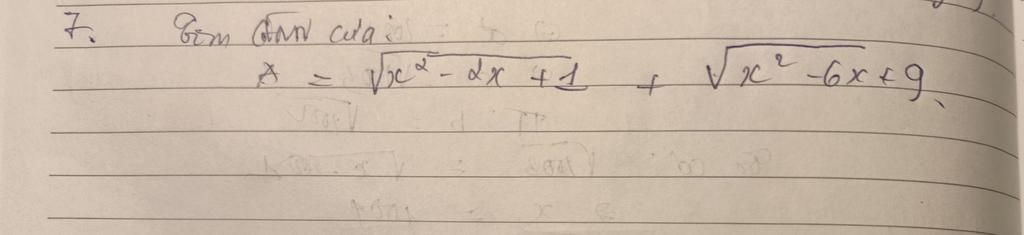 7. Tìm GTNN của:
A = √(x² - 2x + 1) + √(x² - 6x + 9)